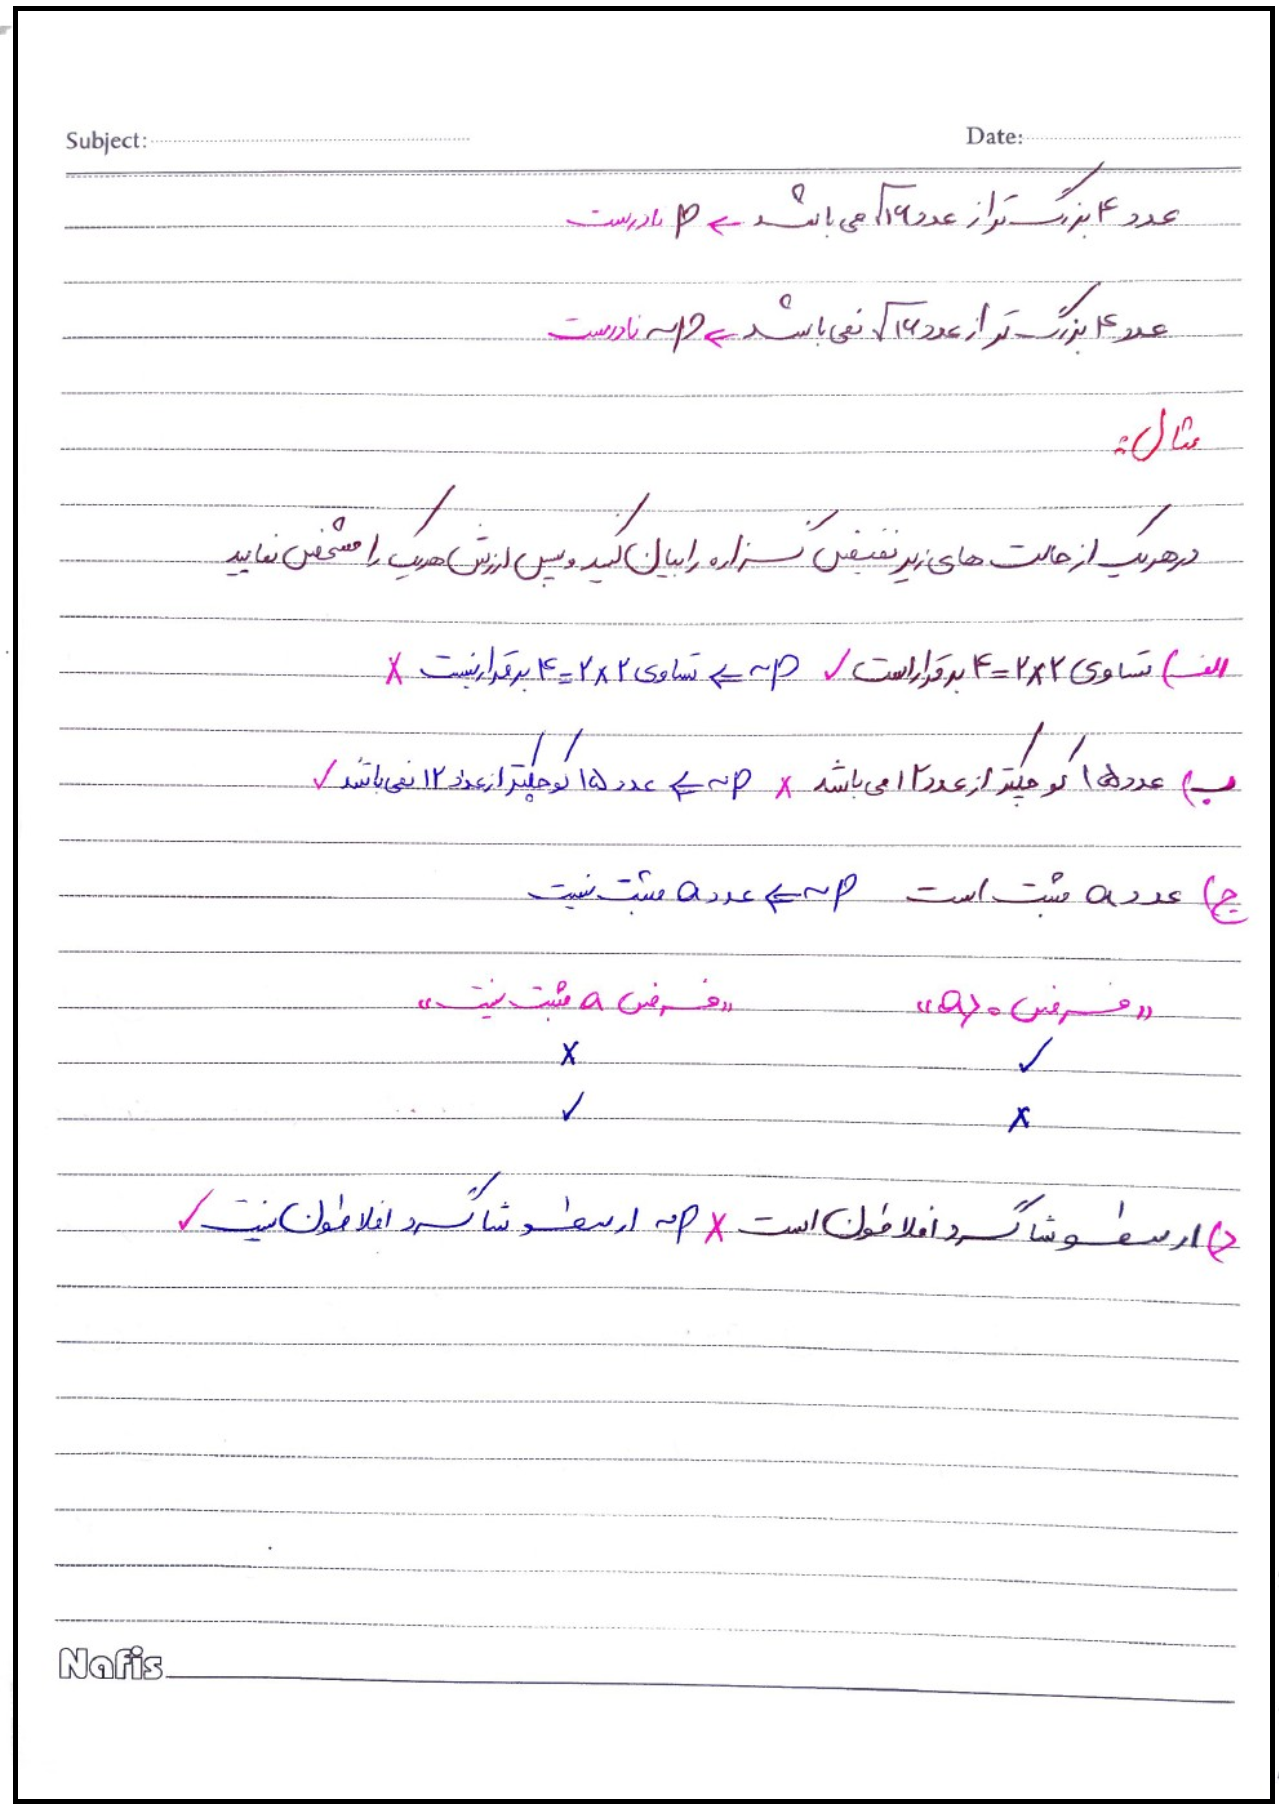 Subject: Date:
عدد ۴ بزرگ تر از عدد √۱۶ می باشد ← p نادرست
عدد ۴ بزرگ تر از عدد √۱۶ نمی باشد ← ~p نادرست
مثال:
در هریک از حالت های زیر نقیض گزاره را بیان کنید و سپس ارزش هریک را مشخص نمایید
الف) تساوی ۲×۲=۴ برقرار است ✓ ~p ⇐ تساوی ۲×۲=۴ برقرار نیست ✗
ب) عدد ۱۵ کوچکتر از عدد ۱۲ می باشد ✗ ~p ⇐ عدد ۱۵ کوچکتر از عدد ۱۲ نمی باشد ✓
ج) عدد a مثبت است ~p ⇐ عدد a مثبت نیست
«فرض a>۰» «فرض a مثبت نیست»
✓ ✗
✗ ✓
د) ارسطو شاگرد افلاطون است ✗ ~p ارسطو شاگرد افلاطون نیست ✓
Nafis